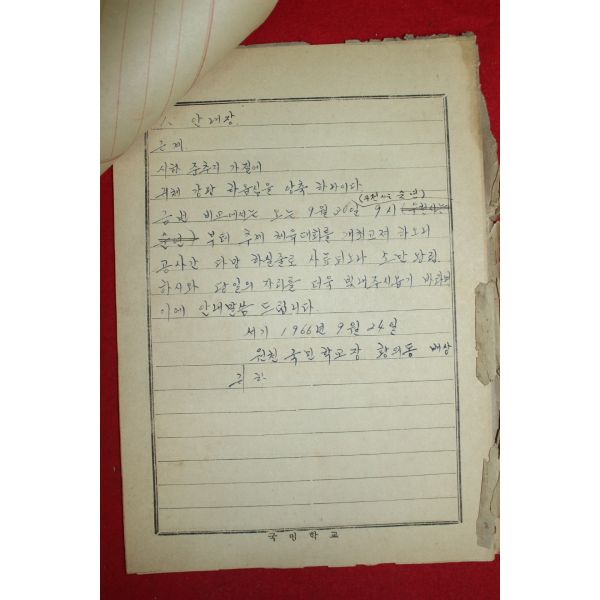 안내장
근계
시하 중추지 가절에
귀체 강왕 하옵심을 앙축 하나이다
(우천시는 순연)
금번 비교에서는 오는 9월 26일 9시
순연) 부터 추계 체육대회를 개최고저 하오니
공사간 다망 하실줄로 사료되오나 왕림
하시와 당일의 자리를 더욱 빛내주시옵기 바라며
이에 안내말씀 드립니다
서기 1966년 9월 24일
원친 국민학교장 황의동 배상
귀하
국민학교